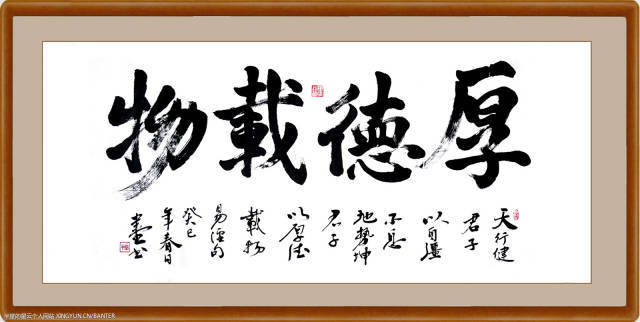 厚德載物
天行健
君子
以自彊
不息
地勢坤
君子
以厚德
載物
易經句
癸巳
年春日
书
的星云个人网站 XINGYUN.CN/BANTER